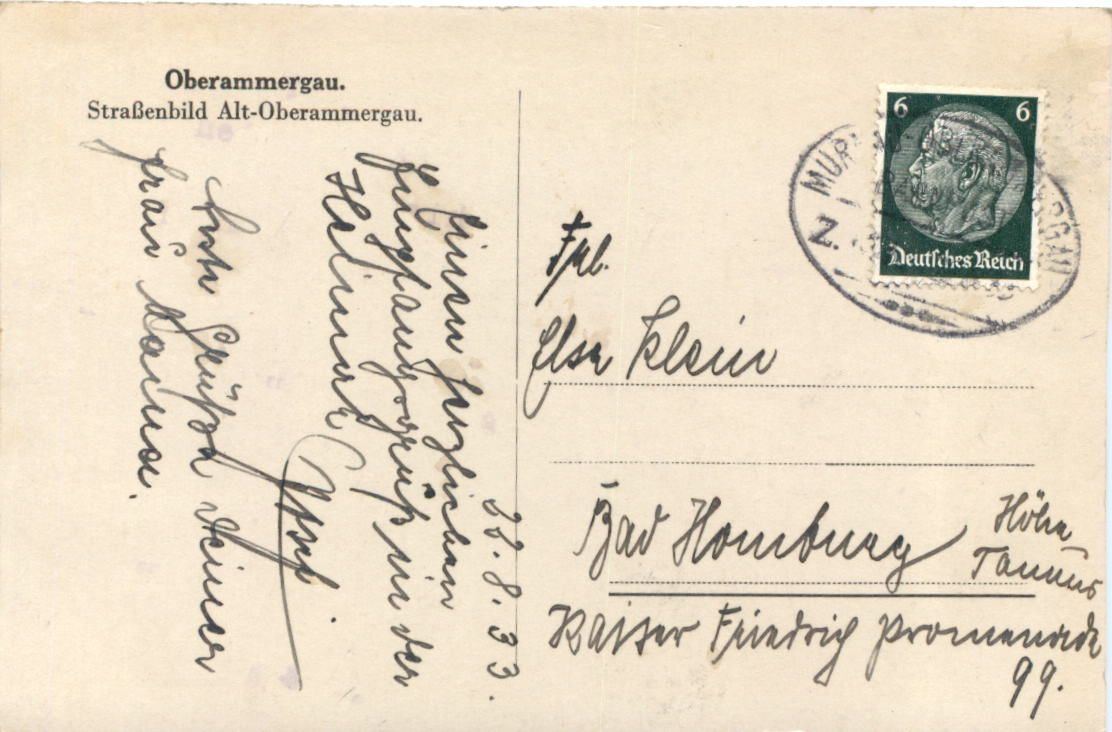 Oberammergau.
Straßenbild Alt-Oberammergau.
6 6
Deutsches Reich
Frl.
Elsa Klein
Bad Homburg
Höhe
Taunus
Kaiser Friedrich Promenade
99.
22.8.33.
Einen herzlichen
Empfangsgruß in der
Heimat
Gruß deiner
Frau Mama.